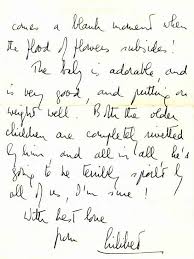 comes a blank moment when
the flood of flowers subsides!
The baby is adorable, and
is very good, and putting on
weight well. Both the older
children are completely riveted
by him and all in all he's
going to be terribly spoilt by
all of us, I'm sure!
With best love
from Lilibet